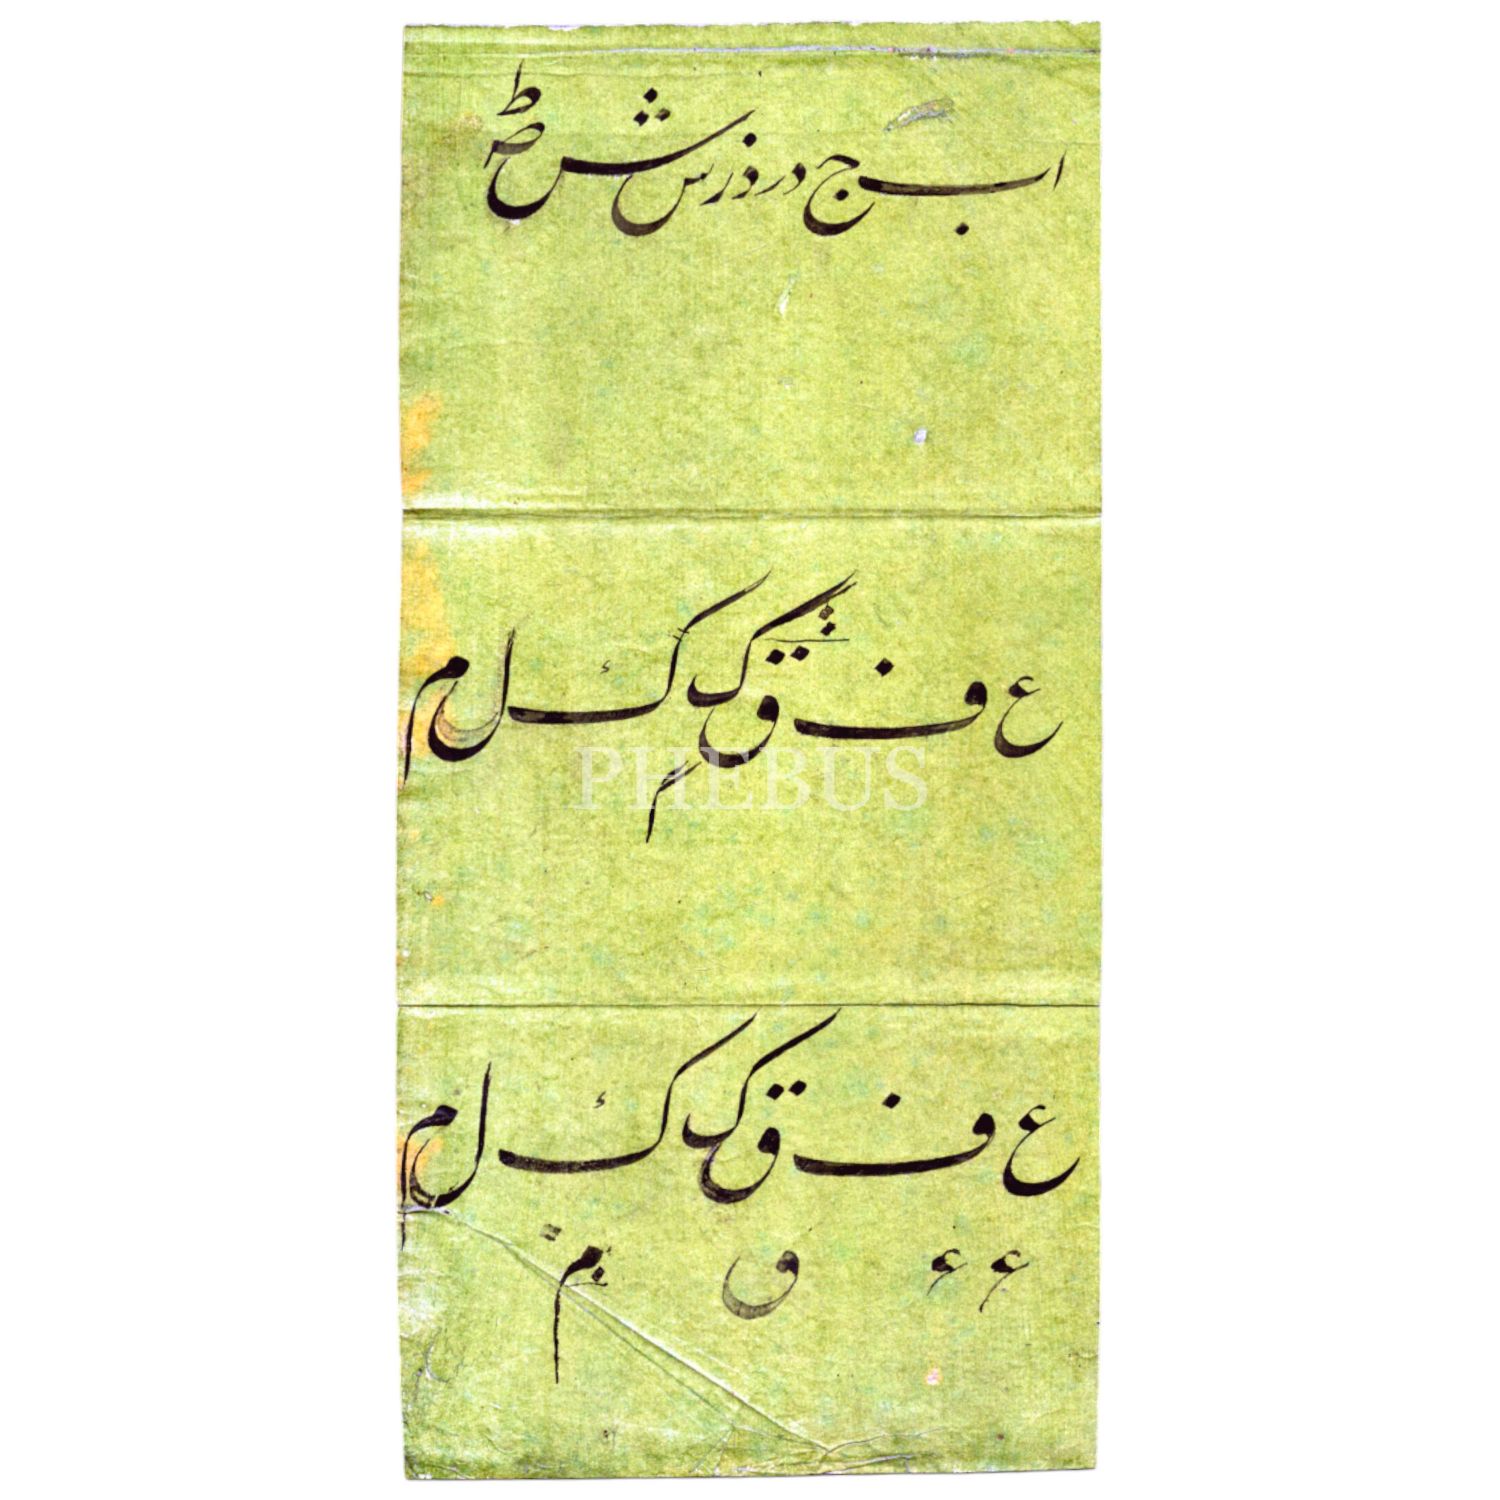 ا ب ج د ر ذ ز س ش ص ط
ع ف ق ک ک ل م
م
PHEBUS
ع ف ق ک ک ل م
ء ء و م